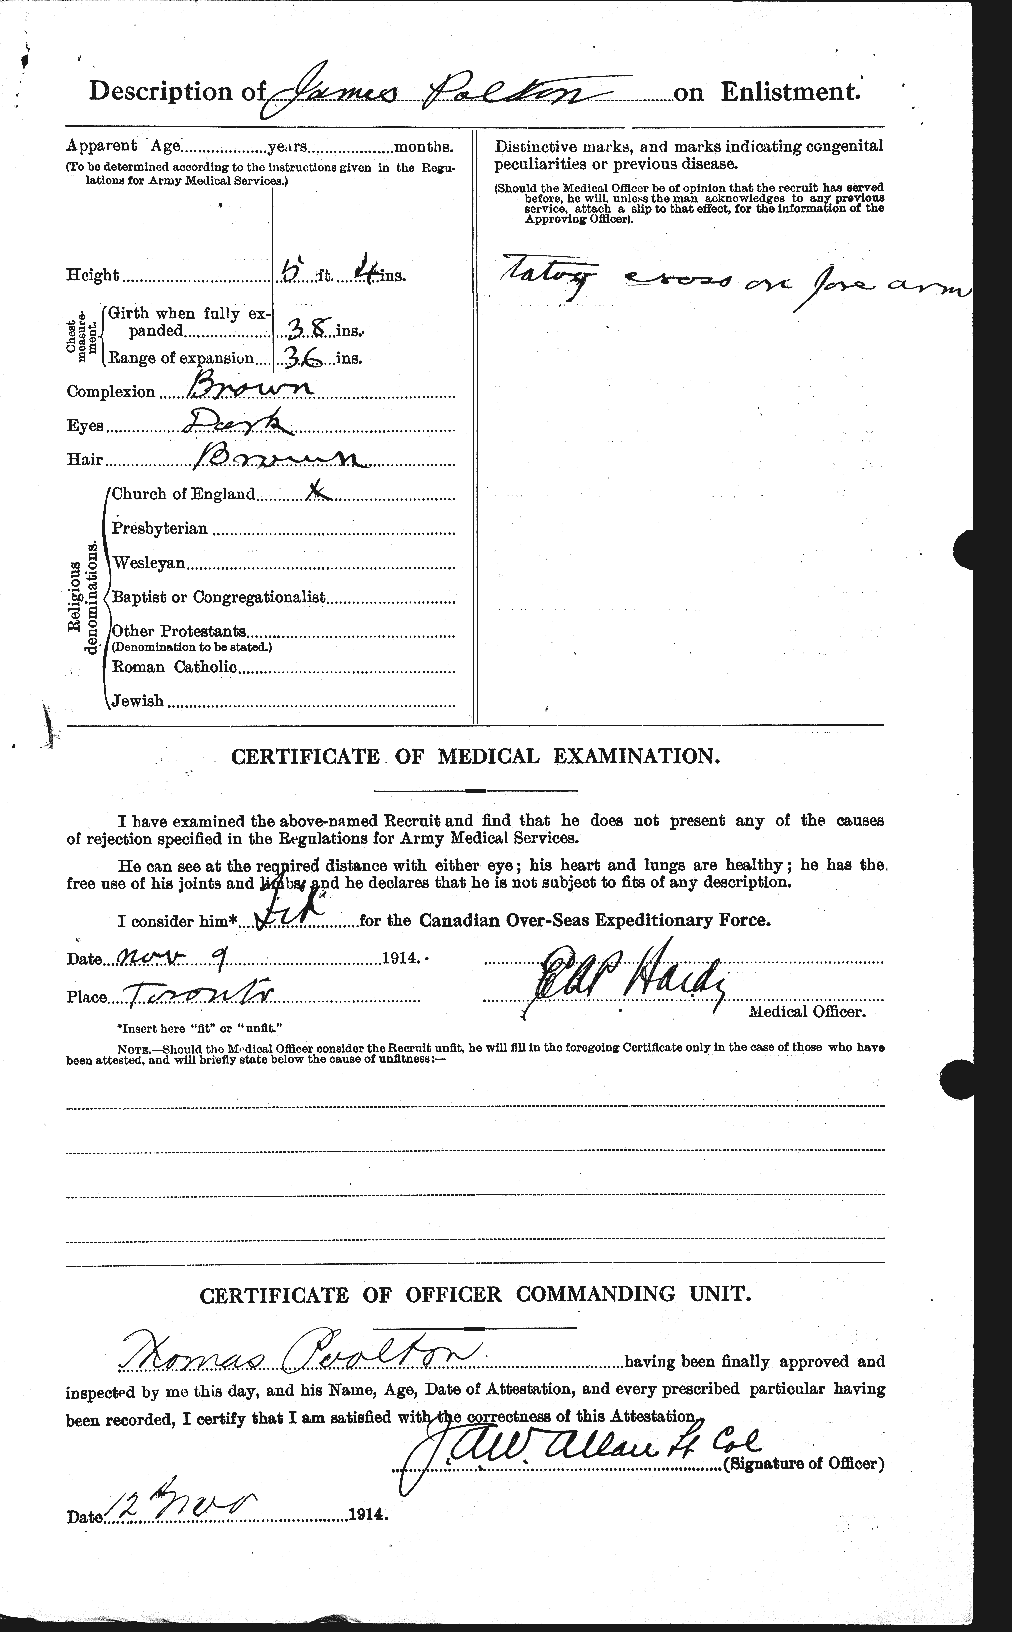 Description of James Polton on Enlistment.
Apparent Age....................years....................months.
(To be determined according to the instructions given in the Regu-
lations for Army Medical Services.)
Height 5 ft. 4 ins.
Chest measurement.
Girth when fully ex-
panded 38 ins.
Range of expansion 36 ins.
Complexion Brown
Eyes Dark
Hair Brown
Religious denominations.
Church of England x
Presbyterian
Wesleyan
Baptist or Congregationalist
Other Protestants
(Denomination to be stated.)
Roman Catholic
Jewish
Distinctive marks, and marks indicating congenital
peculiarities or previous disease.
(Should the Medical Officer be of opinion that the recruit has served
before, he will, unless the man acknowledges to any previous
service, attach a slip to that effect, for the information of the
Approving Officer).
Tatoy cross on fore arm
CERTIFICATE OF MEDICAL EXAMINATION.
I have examined the above-named Recruit and find that he does not present any of the causes
of rejection specified in the Regulations for Army Medical Services.
He can see at the required distance with either eye; his heart and lungs are healthy; he has the
free use of his joints and limbs, and he declares that he is not subject to fits of any description.
I consider him* fit for the Canadian Over-Seas Expeditionary Force.
Date Nov 9 1914.
Place Toronto
Hardy
Medical Officer.
*Insert here "fit" or "unfit."
NOTE.—Should the Medical Officer consider the Recruit unfit, he will fill in the foregoing Certificate only in the case of those who have
been attested, and will briefly state below the cause of unfitness:—
CERTIFICATE OF OFFICER COMMANDING UNIT.
Thomas Poolton having been finally approved and
inspected by me this day, and his Name, Age, Date of Attestation, and every prescribed particular having
been recorded, I certify that I am satisfied with the correctness of this Attestation.
J.A.W. Allan Lt Col
(Signature of Officer)
Date 12th Nov 1914.